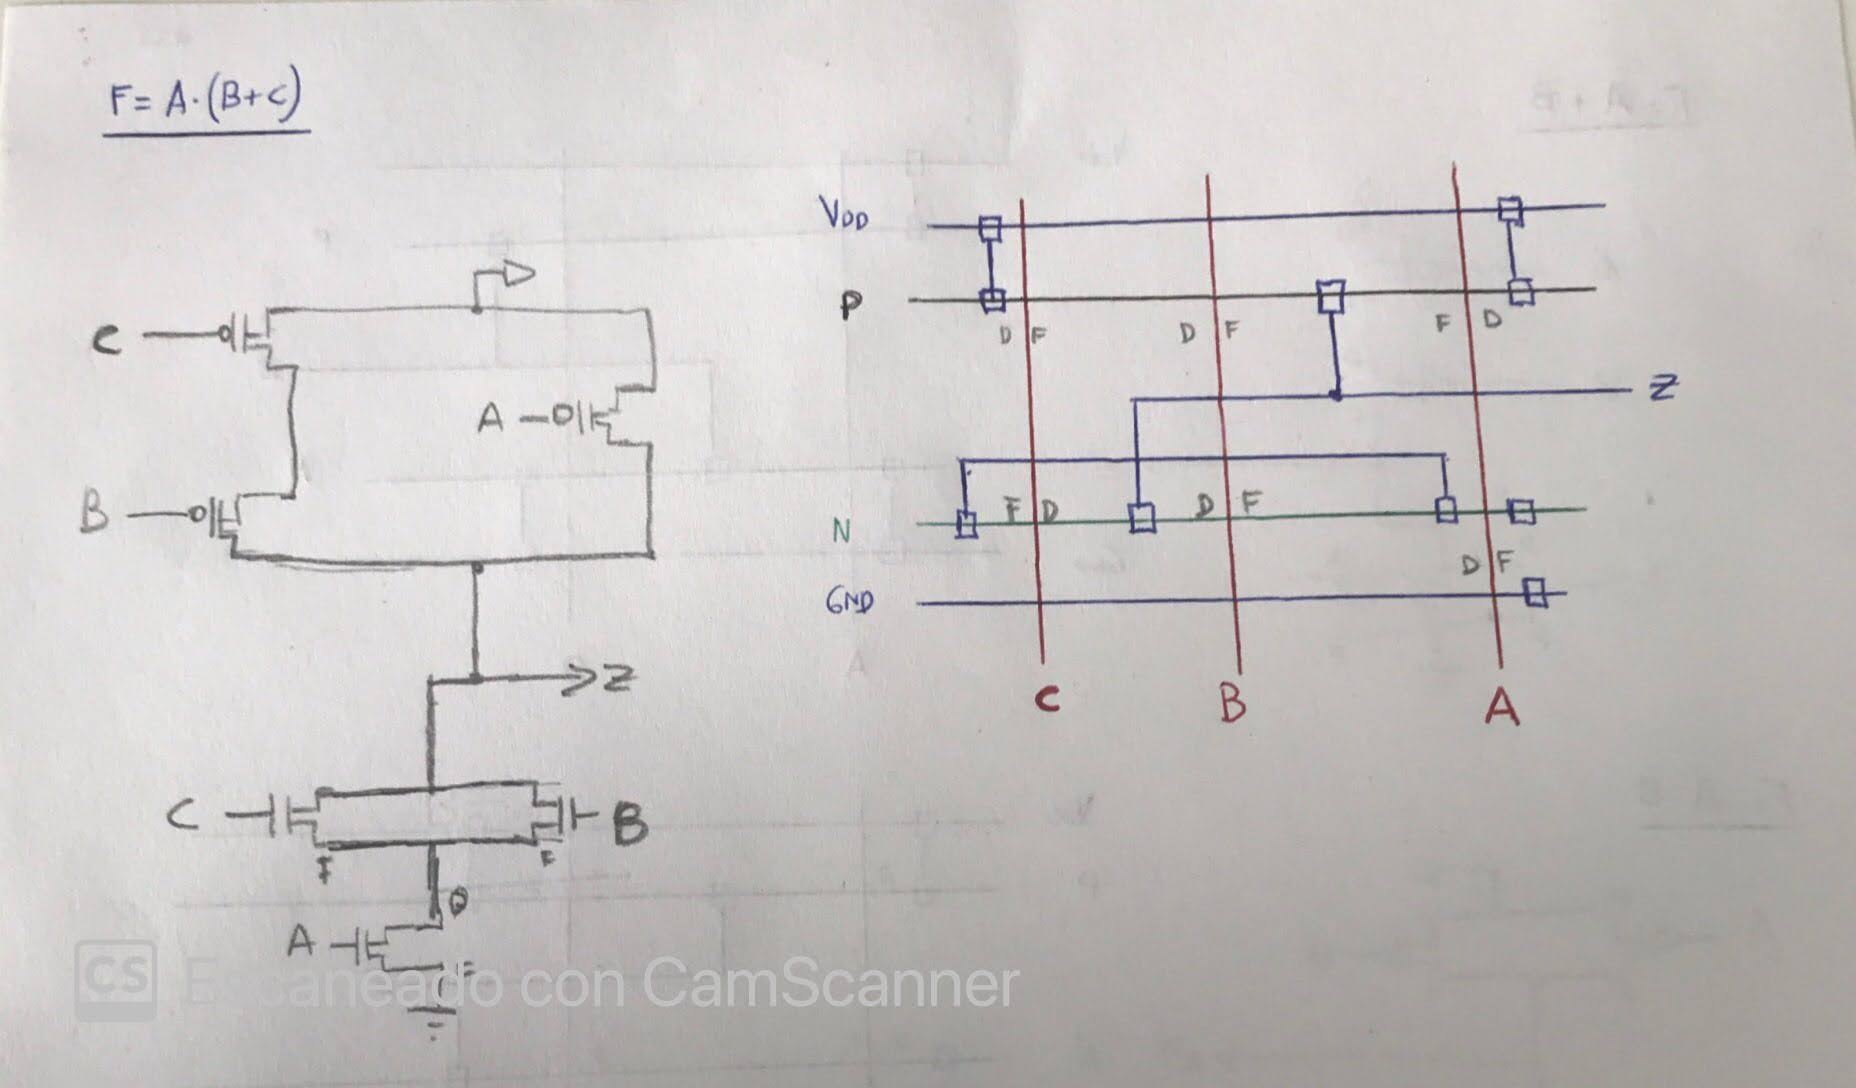 F= A·(B+C)
C
A
B
Z
C
B
F
F
D
A
F
VDD
P
D F
D F
F D
Z
N
F D
D F
D F
GND
C
B
A
CS Escaneado con CamScanner